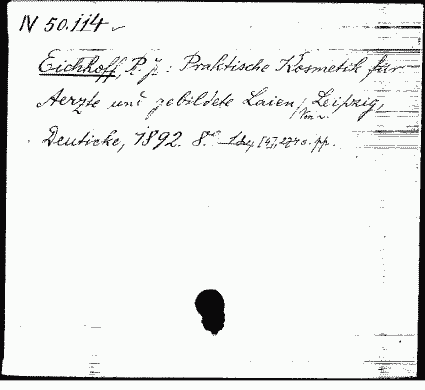 IV 50.114
Eichhoff, P. J.: Praktische Kosmetik für
Aerzte und gebildete Laien, Leipzig,
Deuticke, 1892. 8.°